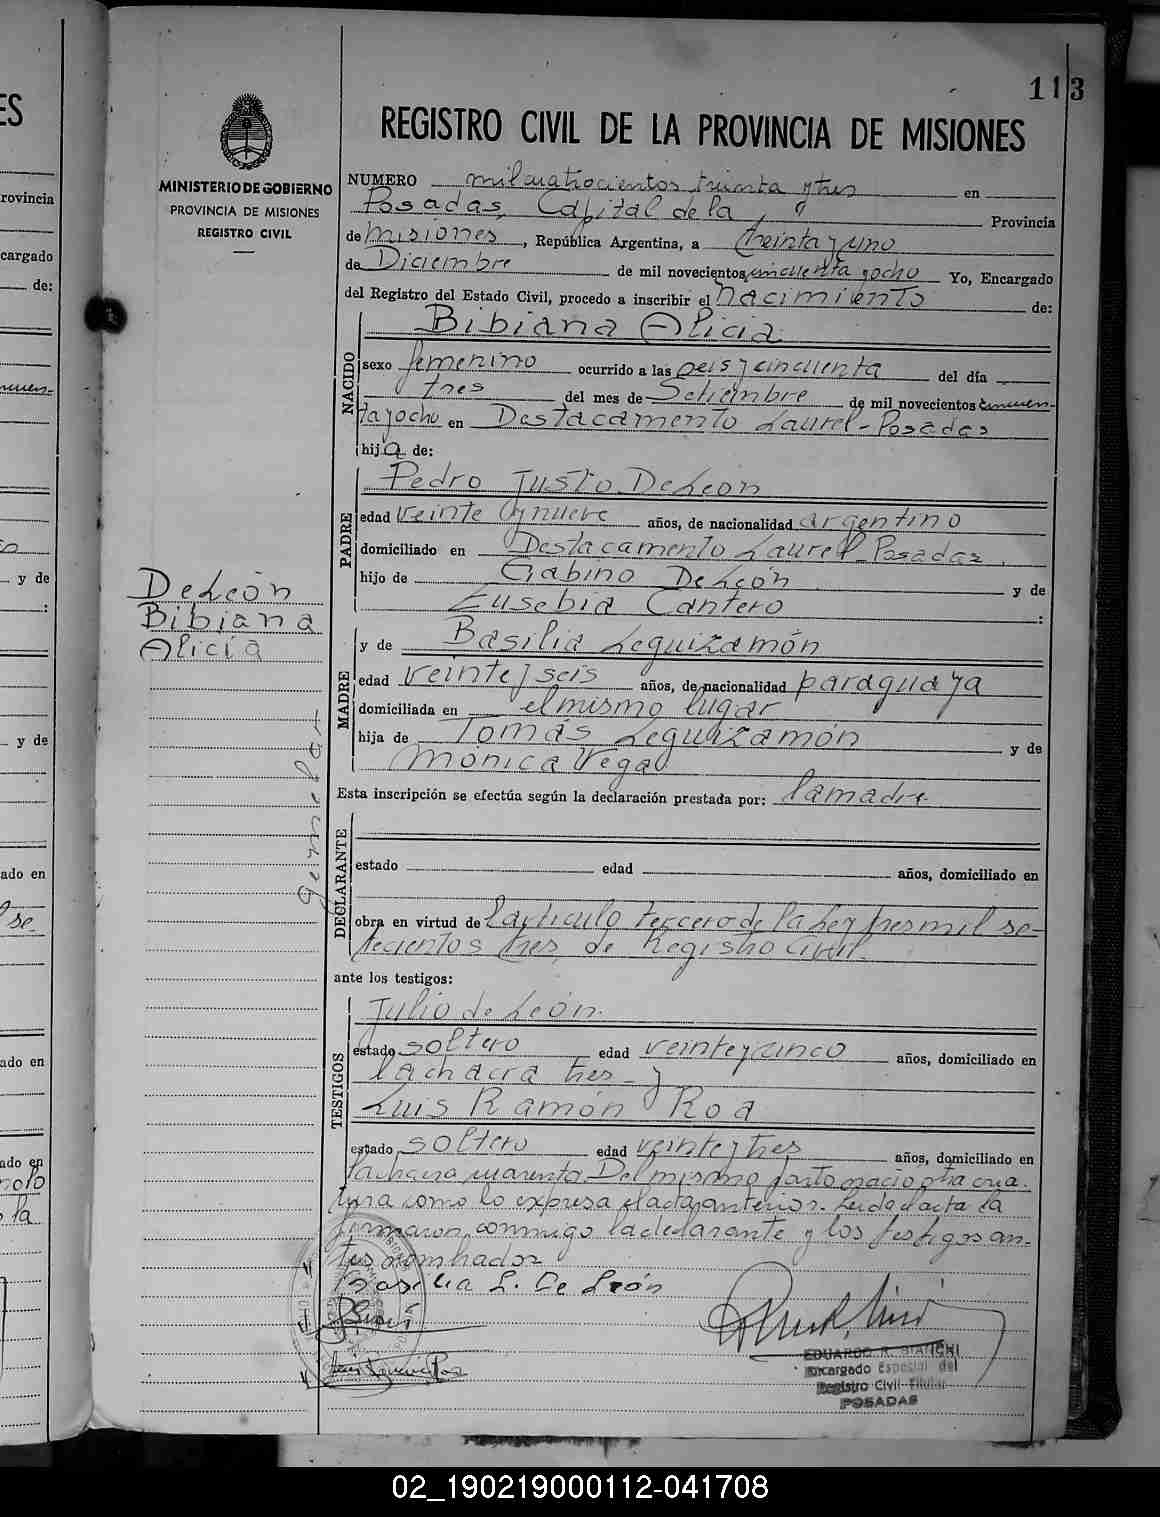 ES
rovincia
cargado
de:
y de
:
y de
ado en
se-
ado en
ado en
la
MINISTERIO DE GOBIERNO
PROVINCIA DE MISIONES
REGISTRO CIVIL
DeLeón
Bibiana
Alicia
gemelar
113
REGISTRO CIVIL DE LA PROVINCIA DE MISIONES
NUMERO milcuatrocientos treinta y tres en
Posadas, Capital de la Provincia
de Misiones, República Argentina, a treinta y uno
de Diciembre de mil novecientos cincuenta y ocho Yo, Encargado
del Registro del Estado Civil, procedo a inscribir el nacimiento de:
NACIDO
Bibiana Alicia
sexo femenino ocurrido a las seis y cincuenta del día
tres del mes de Setiembre de mil novecientos cincuen-
ta y ocho en Destacamento Laurel-Posadas
hija de:
PADRE
Pedro Justo DeLeon
edad veinte y nueve años, de nacionalidad argentino
domiciliado en Destacamento Laurel-Posadas.
hijo de Gabino DeLeón y de
Eusebia Cantero :
MADRE
y de Basilia Leguizamón
edad veinte y seis años, de nacionalidad paraguaya
domiciliada en el mismo lugar
hija de Tomás Leguizamón y de
Mónica Vega
Esta inscripción se efectúa según la declaración prestada por: la madre.
DECLARANTE
estado edad años, domiciliado en
obra en virtud de l artículo tercero de la Ley tresmil se-
tecientos tres, de Registro Civil.
ante los testigos:
TESTIGOS
Julio de León.
estado soltero edad veinte y cinco años, domiciliado en
la chacra tres y
Luis Ramón Roa
estado soltero edad veinte y tres años, domiciliado en
la chacra cuarenta. Del mismo parto nació otra cria-
tura como lo expresa el acta anterior. Leida el acta la
firmaron conmigo la declarante y los testigos an-
tes nombrados
Basilia L. De León
EDUARDO R. BIANCHI
Encargado Especial del
Registro Civil Titular
POSADAS
02_190219000112-041708